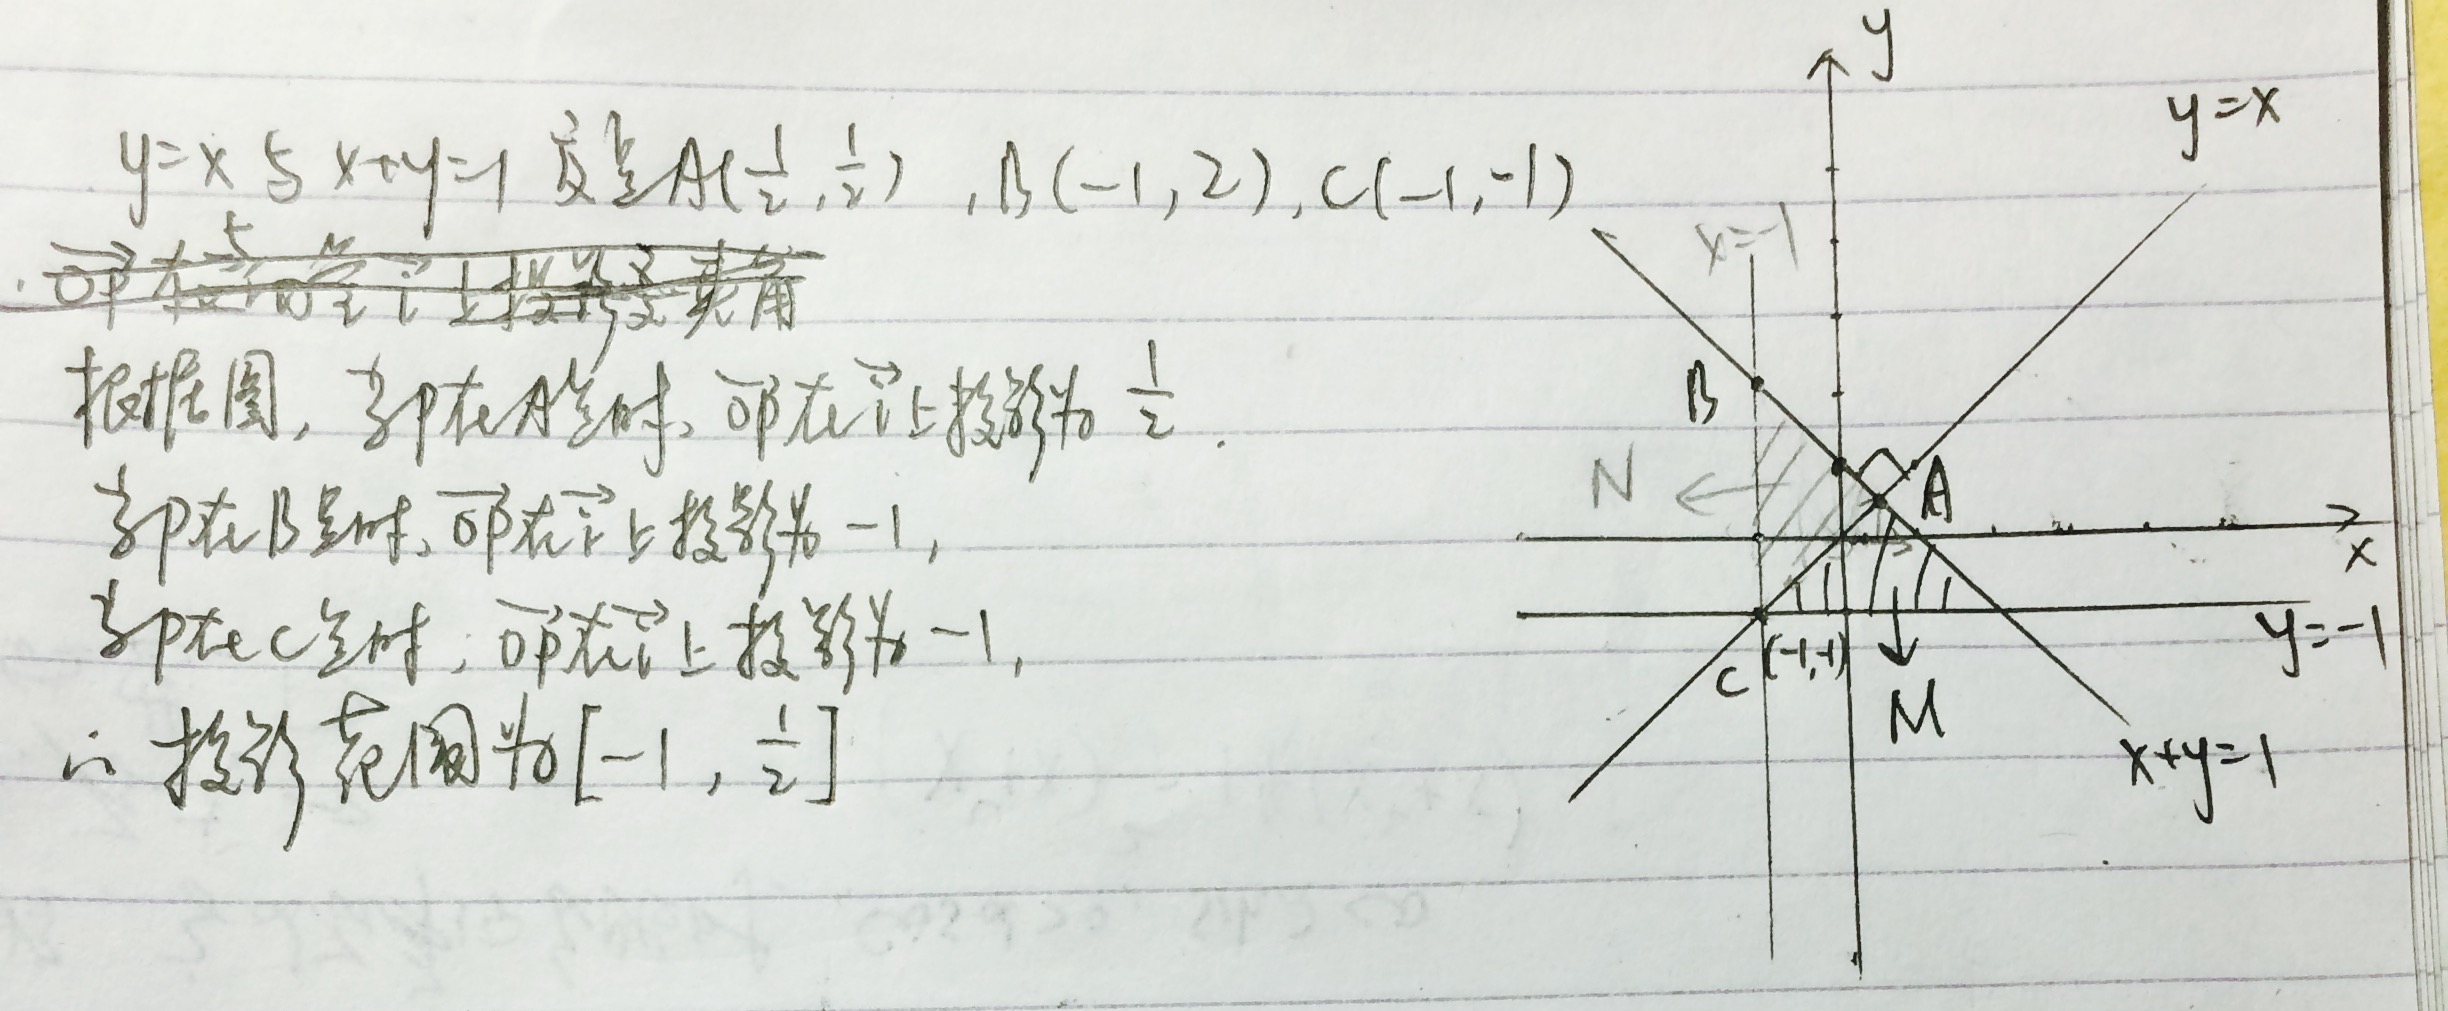 y=x与x+y=1交点A(1/2,1/2),B(-1,2),C(-1,-1)
根据图,当P在A点时,OP在i上投影为1/2.
当P在B点时,OP在i上投影为-1,
当P在C点时,OP在i上投影为-1,
∴投影范围为[-1,1/2]
y
y=x
x=-1
B
N
A
x
y=-1
C(-1,-1)
M
x+y=1